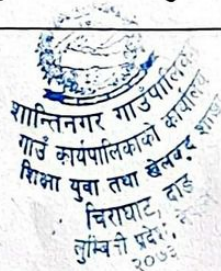 शान्तिनगर गाउँपालिका
गाउँ कार्यपालिकाको कार्यालय
शिक्षा युवा तथा खेलकुद शाखा
चिराघाट, दाङ
लुम्बिनी प्रदेश,
२०७३